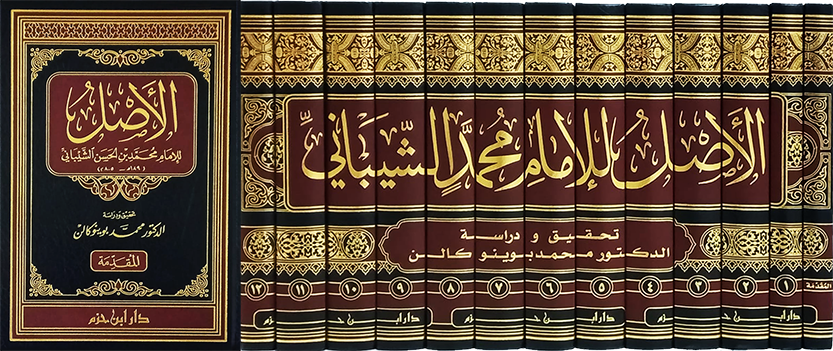 الأصل
للإمام محمد بن الحسن الشيباني
(١٨٩هـ - ٨٠٥م)
تحقيق ودراسة
الدكتور محمد بوينوكالن
المقدمة
دار ابن حزم
الأصل للإمام محمد الشيباني
تحقيق و دراسة
الدكتور محمد بوينوكالن
المقدمة ١ ٢ ٣ ٤ ٥ ٦ ٧ ٨ ٩ ١٠ ١١ ١٢
حزم دار ابن حزم دار ابن حزم